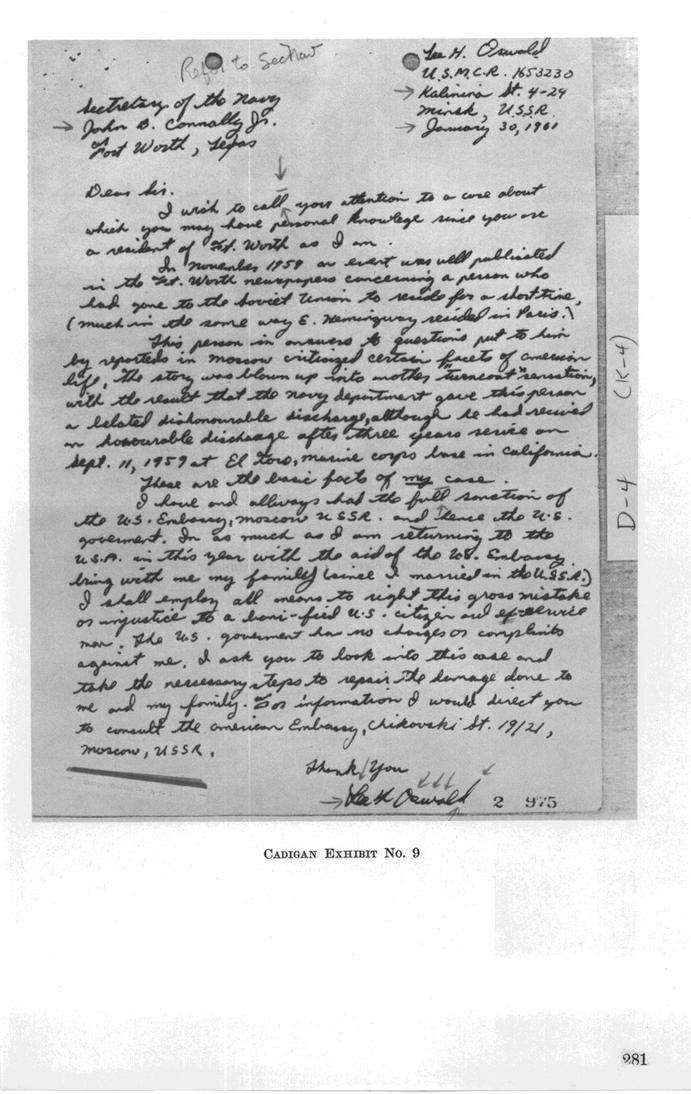 Refer to SecNav
Lee H. Oswald
U.S.M.C.R. 1653230
Kalinina St. 4-24
Minsk, USSR.
January 30, 1961
Secretary of the Navy
John B. Connally Jr.
of Fort Worth, Texas
Dear Sir.
I wish to call your attention to a case about
which you may have personal knowlege since you are
a resident of Ft. Worth as I am.
In November 1959 an event was well publicated
in the Ft. Worth newspapers concerning a person who
had gone to the Soviet Union to reside for a short time,
(much in the same way E. Hemingway resided in Paris.)
This person in answers to questions put to him
by reporteds in Moscow criticized certain facets of american
life, the story was blown up into another "turncoat" sensation,
with the result that the navy department gave this person
a belated dishonourable discharge, although he had received
an honourable discharge after three years service on
Sept. 11, 1959 at El Toro, marine corps base in California.
These are the basic facts of my case.
I have and allways had the full sanction of
the U.S. Embassy, Moscow USSR. and hence the U.S.
goverment. In as much as I am returning to the
U.S.A. in this year with the aid of the U.S. Embassy
bring with me my family (since I married in the U.S.S.R.)
I shall employ all means to right this gross mistake
or injustice to a boni-fied U.S. citizen and ex-service
man. The U.S. goverment has no charges or complaints
against me. I ask you to look into this case and
take the neccessary steps to repair the damage done to
me and my family. For information I would direct you
to consult the american Embassy, Chikovski St. 19/21,
Moscow, USSR.
Thank You
Lee H Oswald
2 975
D-4 (K-4)
CADIGAN EXHIBIT NO. 9
281